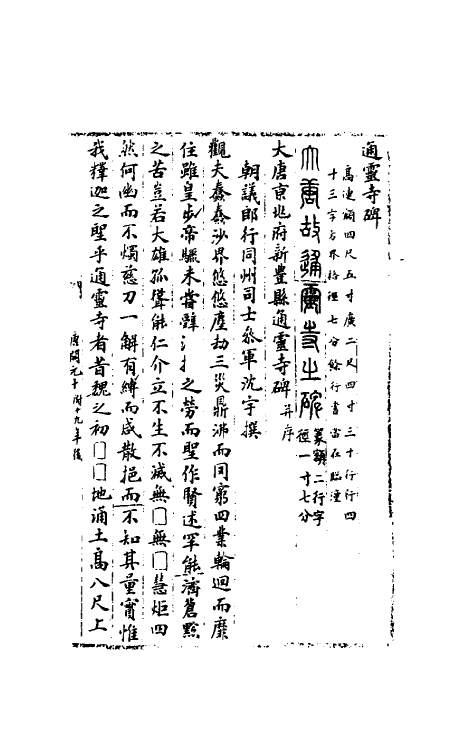 通靈寺碑
高連額四尺五寸廣二尺四寸三十行行四
十三字方界格徑七分餘行書 當在臨潼
大唐故通靈寺之碑 篆額二行字徑一寸七分
大唐京兆府新豐縣通靈寺碑并序
朝議郎行同州司士參軍沈宇撰
觀夫森森沙界悠悠塵劫三災鼎沸而同窮四業輪迴而靡
住雖皇步帝驟未嘗 之勞而聖作賢述罕能濟蒼黔
之苦豈若大雄孤聳能仁介立不生不滅無□無□慧炬四
然何幽而不燭慈刀一解有縛而咸散挹而不知其量實惟
我釋迦之聖乎通靈寺者昔魏之初□□地涌土高八尺上
唐開元十 附十九年後